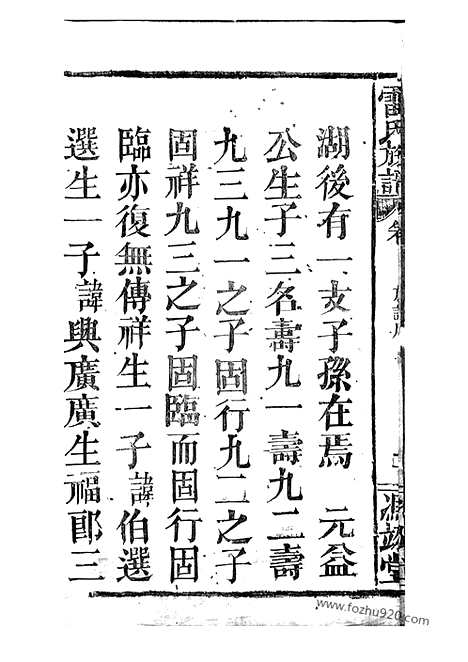 雷氏族譜 卷 族譜序 源端堂
湖後有一支子孫在焉 元益
公生子三名壽九一壽九二壽
九三九一之子固行九二之子
固祥九三之子固臨而固行固
臨亦復無傳祥生一子諱伯選
選生一子諱興廣廣生福郎三
www.fozhu920.com